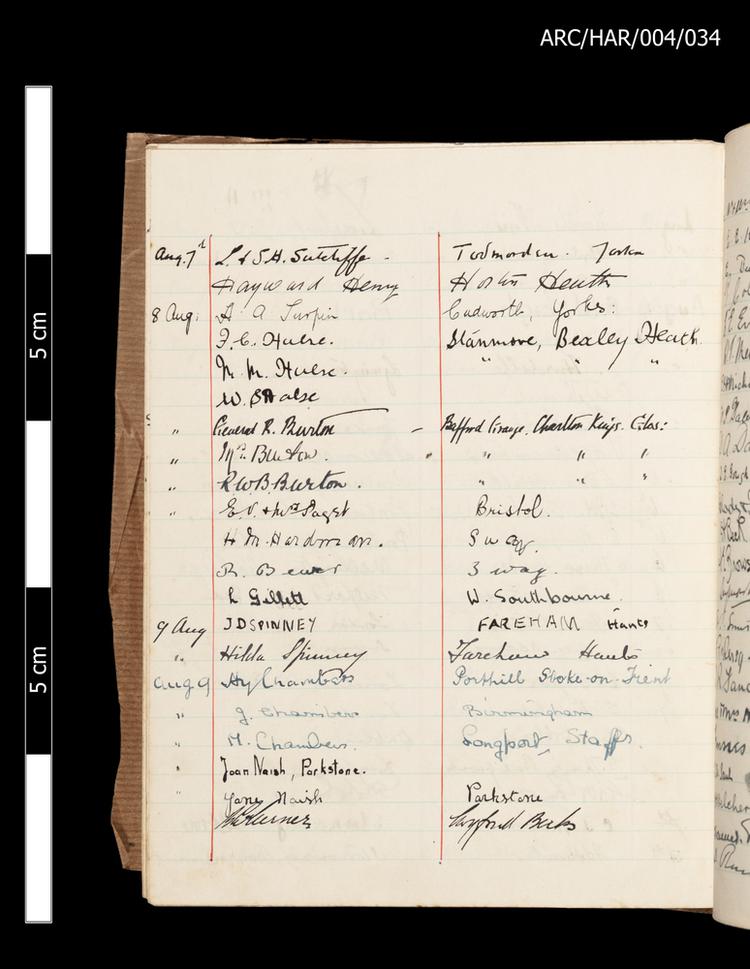 ARC/HAR/004/034
5 cm
5 cm
Aug. 7th L. & S.H. Sutcliffe. Todmorden. Yorks
Hayward Henry Heath
8 Aug: A A Turpin Cudworth, Yorks:
F. C. Hulse. Stanmore, Bexley Heath.
M. M. Hulse. " " "
W. Hulse
" General R. Burton - Bafford Grange, Charlton Kings. Glos:
" Mrs. Burton. " " " "
" R.W.B. Burton. " " "
" E.V. & Mrs Paget Bristol.
H. M. Hardman.
R.
L Gillett W. Southbourne.
9 Aug JD SPINNEY FAREHAM Hants
" Hilda Spinney Fareham Hants
Aug 9 Hy Chambers Porthill Stoke-on-Trent
" J. Chambers Birmingham
" M. Chambers. Longport, Staffs.
" Joan Naish, Parkstone.
" Jane Naish Parkstone
Turner Bucks